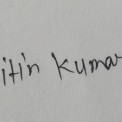 itin kumar